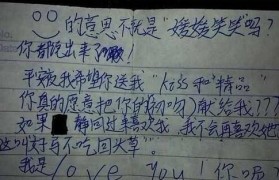 的意思不就是“嘻嘻笑笑”吗?
你都说出来了!
平安夜我希望你送我“kiss和“精品”
你真的愿意把你的初吻献给我???
如果 静回过来喜欢我,我不会再喜欢她
这叫好马不吃回头草。
我是 Love You! 你呢